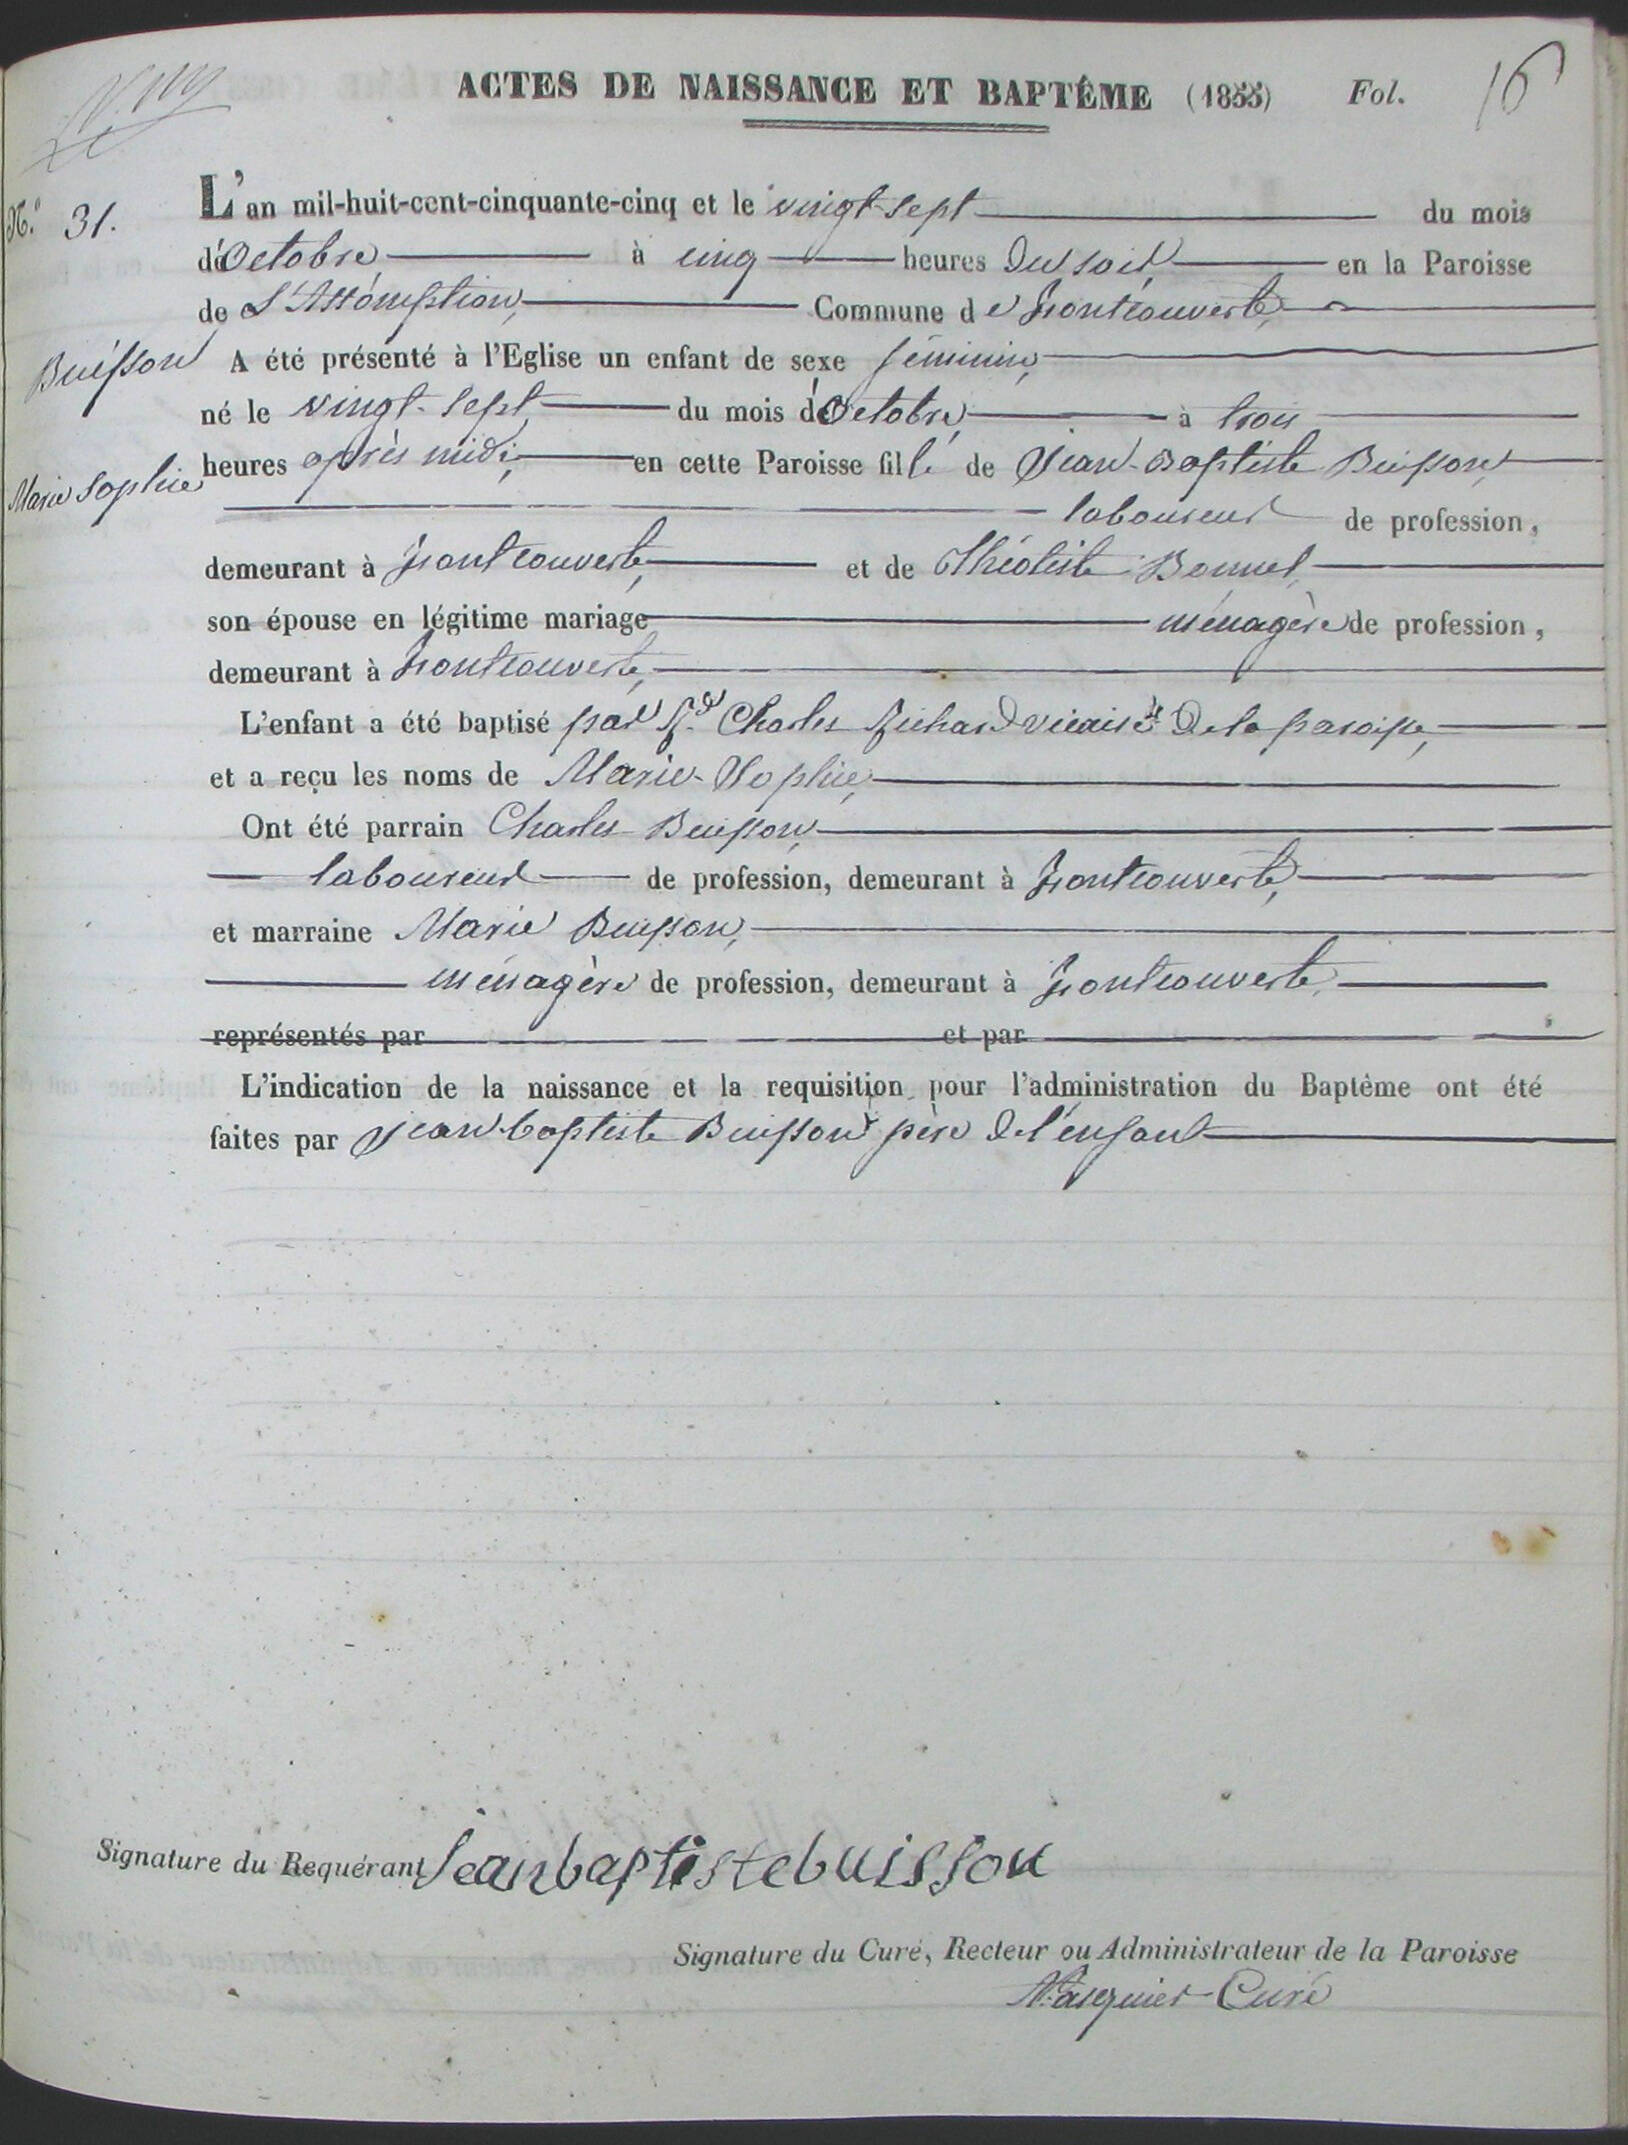 ACTES DE NAISSANCE ET BAPTÊME (1855) Fol. 16
N.º 31.
L'an mil-huit-cent-cinquante-cinq et le vingt-sept du mois
d'Octobre à cinq heures du soir en la Paroisse
de L'Assomption, Commune de Frontcouverte,
Buisson
A été présenté à l'Eglise un enfant de sexe féminin,
né le vingt-sept du mois d'Octobre, à trois
Marie Sophie
heures après midi, en cette Paroisse fille de Jean-Baptiste Buisson,
laboureur de profession,
demeurant à Frontcouverte, et de Théotiste Bonnel,
son épouse en légitime mariage ménagère de profession,
demeurant à Frontcouverte,
L'enfant a été baptisé par Rd Charles Richard vicaire de la paroisse,
et a reçu les noms de Marie-Sophie,
Ont été parrain Charles Buisson,
laboureur de profession, demeurant à Frontcouverte,
et marraine Marie Buisson,
ménagère de profession, demeurant à Frontcouverte,
représentés par et par
L'indication de la naissance et la requisition pour l'administration du Baptême ont été
faites par Jean-baptiste Buisson père de l'enfant
Signature du Requérant Jeanbaptistebuisson
Signature du Curé, Recteur ou Administrateur de la Paroisse
Curé